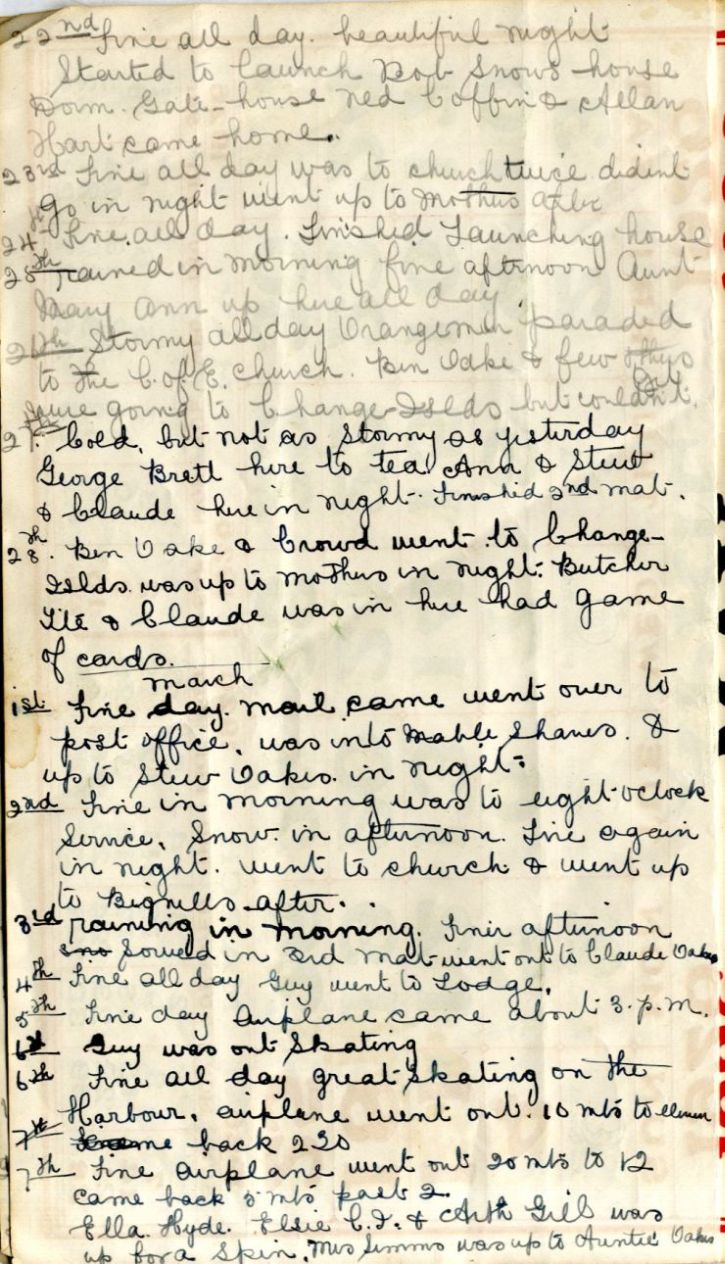 22nd Fine all day. beautiful night
Started to launch Bob Snows house
Dorm. Gate-house Ned Coffin & Allan
Hart came home.
23rd Fine all day was to church twice dident
go in night went up to Mothers after
24th Fine all day. Finished Launching house
25th rained in morning fine afternoon Aunt
Mary Ann up here all day.
26th Stormy all day Orangemen paraded
to the C. of E. church. Ben Oake & few others
were going to Change Islds but couldn't.
27th. Cold, but not as Stormy as yesterday
George Brett here to tea. Ann & Stew
& Claude here in night. Finished 2nd mat.
28th. Ben Oake & Crowd went to Change-
Islds. was up to Mothers in night. Butcher
& Claude was in here had game
of cards.
March
1st Fine day. mail came went over to
post office, was into Mable Shaves. &
up to Stew Oakes in night.
2nd Fine in morning was to eight oclock
Service, Snow in afternoon. Fine again
in night. went to church & went up
to Bignells after.
3rd raining in morning. Finer afternoon
sno Sowed in 3rd mat went out to Claude Oakes
4th Fine all day Guy went to Lodge.
5th Fine day Airplane came about 3. p.m.
6th Guy was out Skating
6th Fine all day great Skating on the
Harbour. airplane went out. 10 mts to eleven
7th came back 2 20
7th Fine airplane went out 20 mts to 12
came back 5 mts past 2.
Ella. Hyde. Elsie C.J. & Arth Gill was
up for a Spin. Mrs Simms was up to Auntie Oakes